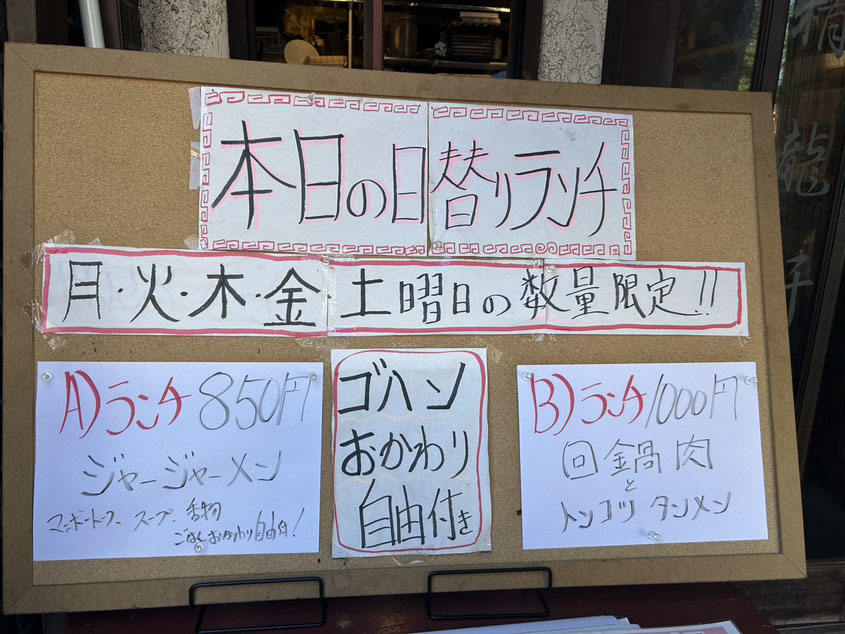 本日の日替りランチ
月・火・木・金・土曜日の数量限定!!
A)ランチ 850円
ジャージャーメン
マーボートーフ、スープ、香物
ごはんおかわり自由!
ゴハン
おかわり
自由付き
B)ランチ 1000円
回鍋肉
と
トンコツ タンメン
龍
子